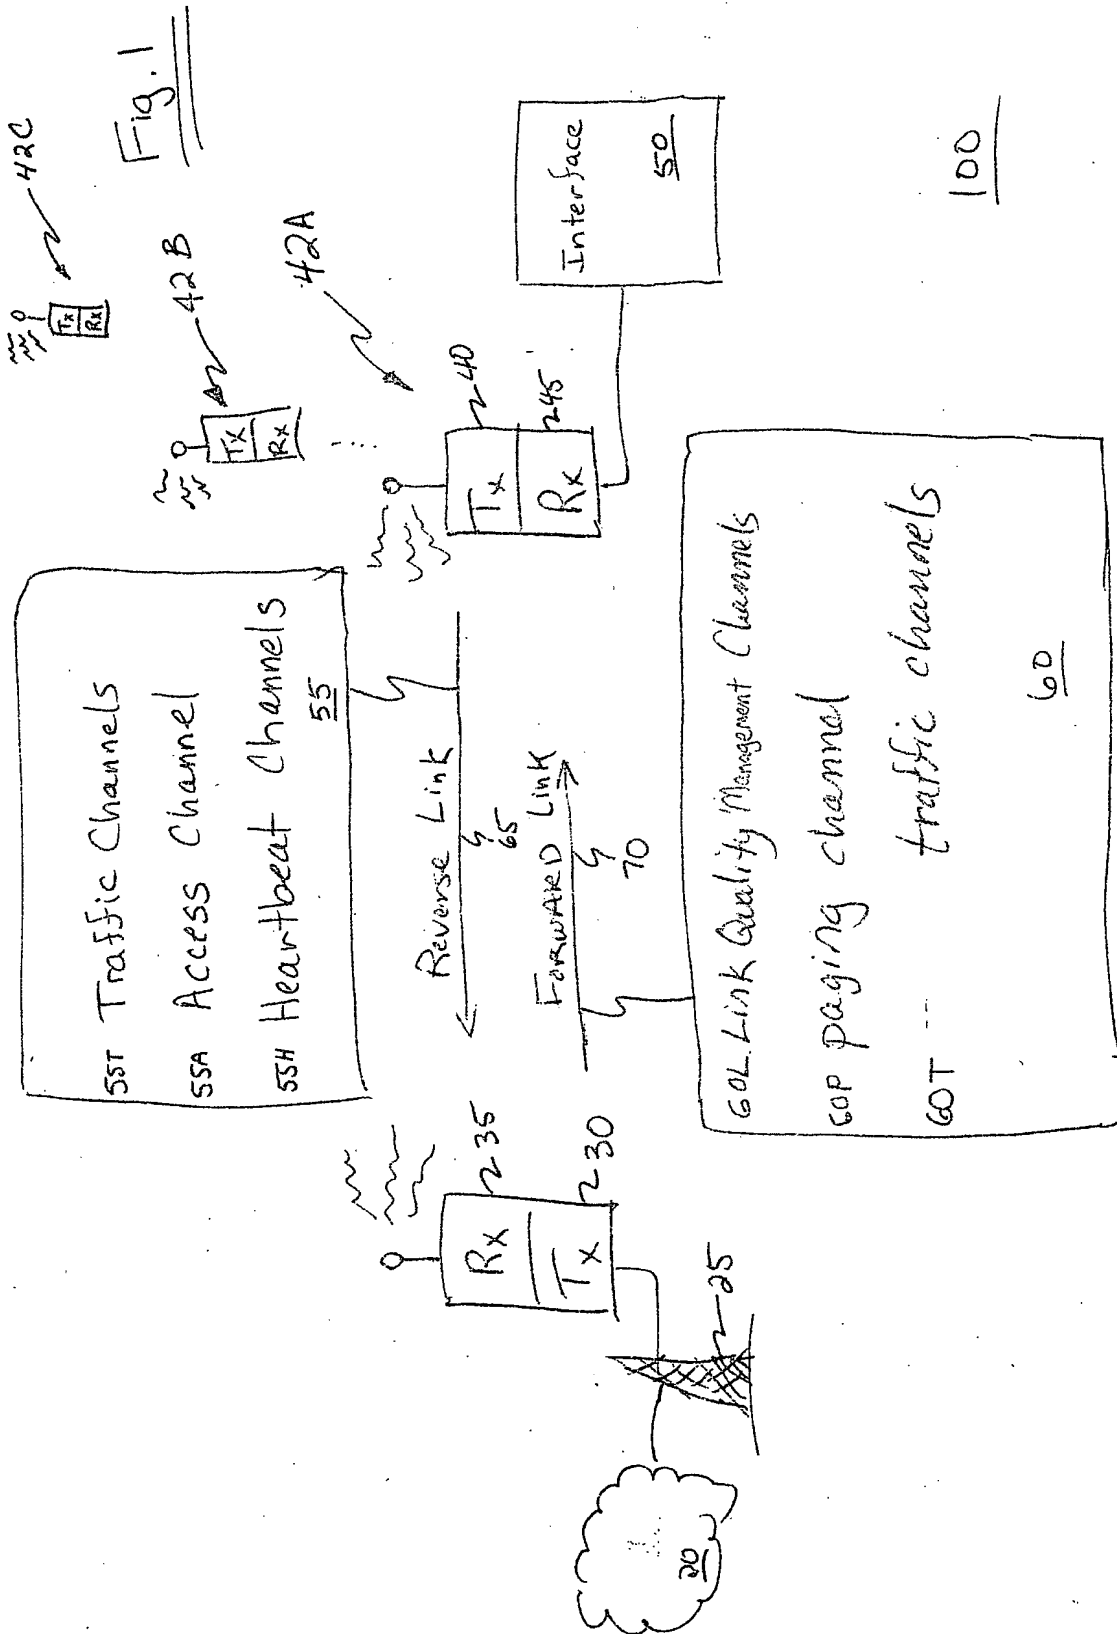 Fig. 1
42C
Tx
Rx
42B
Tx
Rx
42A
Tx
40
Rx
45
Interface
50
55T Traffic Channels
55A Access Channel
55H Heartbeat Channels
55
Reverse Link
65
FORWARD Link
70
Rx
35
Tx
30
25
20
60L Link Quality Management Channels
60P paging channel
60T --- traffic channels
60
100